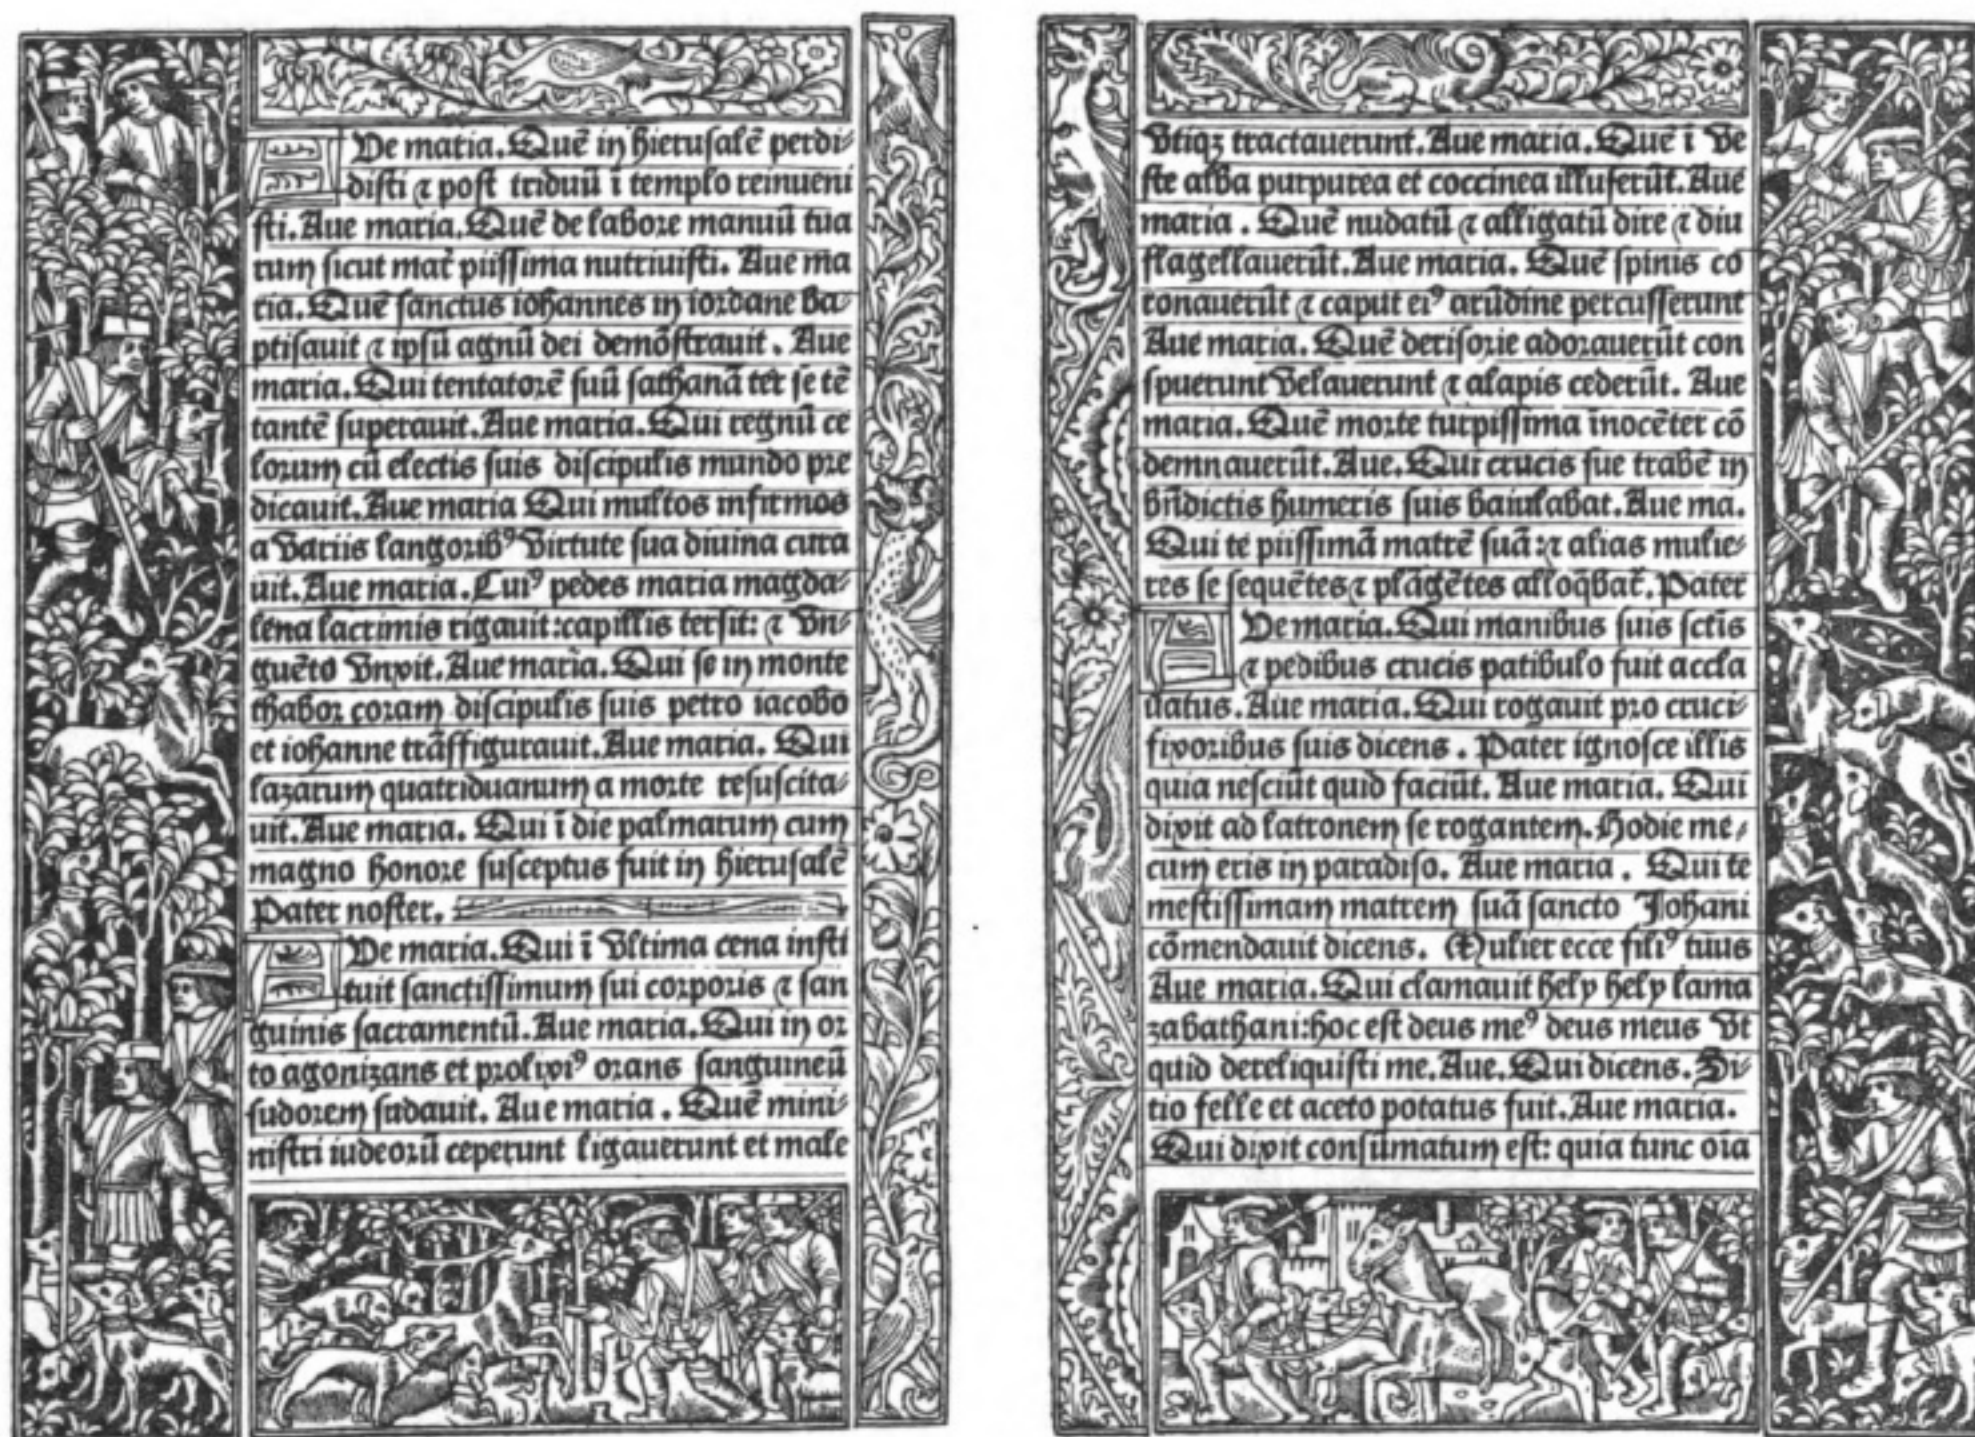 AVe maria. Quē in hierusalē perdi-
disti ⁊ post triduū ī templo reinueni
sti. Aue maria. Quē de labore manuū tua
rum sicut mat̄ piissima nutriuisti. Aue ma
ria. Quē sanctus iohannes in iordane ba-
ptisauit ⁊ ipsū agnū dei demōstrauit. Aue
maria. Qui tentatorē suū sathanā ter se tē
tantē superauit. Aue maria. Qui regnū ce
lorum cū electis suis discipulis mundo pre
dicauit. Aue maria Qui multos infirmos
a variis langorib⁹ virtute sua diuina cura
uit. Aue maria. Cui⁹ pedes maria magda-
lena lacrimis rigauit: capillis tersit: ⁊ vn-
guēto vnxit. Aue maria. Qui se in monte
thabor coram discipulis suis petro iacobo
et iohanne trāsfigurauit. Aue maria. Qui
lazarum quatriduanum a morte resuscita-
uit. Aue maria. Qui ī die palmarum cum
magno honore susceptus fuit in hierusalē
Pater noster.
AVe maria. Qui ī vltima cena insti
tuit sanctissimum sui corporis ⁊ san
guinis sacramentū. Aue maria. Qui in or
to agonizans et prolixi⁹ orans sanguineū
sudorem sudauit. Aue maria. Quē mini-
nistri iudeorū ceperunt ligauerunt et male
vtiqꝫ tractauerunt. Aue maria. Quē ī ve
ste alba purpurea et coccinea illuserūt. Aue
maria. Quē nudatū ⁊ alligatū dire ⁊ diu
flagellauerūt. Aue maria. Quē spinis co
ronauerūt ⁊ caput ei⁹ arūdine percusserunt
Aue maria. Quē derisorie adorauerūt con
spuerunt velauerunt ⁊ alapis cederūt. Aue
maria. Quē morte turpissima īnocēter cō
demnauerūt. Aue. Qui crucis sue trabē in
bn̄dictis humeris suis baiulabat. Aue ma.
Qui te piissimā matrē suā: ⁊ alias mulie-
res se sequētes ⁊ plāgētes alloq̄bat̄. Pater
AVe maria. Qui manibus suis sctīs
⁊ pedibus crucis patibulo fuit accla
uatus. Aue maria. Qui rogauit pro cruci-
fixoribus suis dicens. Pater ignosce illis
quia nesciūt quid faciūt. Aue maria. Qui
dixit ad latronem se rogantem. Hodie me-
cum eris in paradiso. Aue maria. Qui te
mestissimam matrem suā sancto Johani
cōmendauit dicens. Mulier ecce fili⁹ tuus
Aue maria. Qui clamauit hely hely lama
zabathani: hoc est deus me⁹ deus meus vt
quid dereliquisti me. Aue. Qui dicens. Si-
tio felle et aceto potatus fuit. Aue maria.
Qui dixit consūmatum est: quia tunc oīa